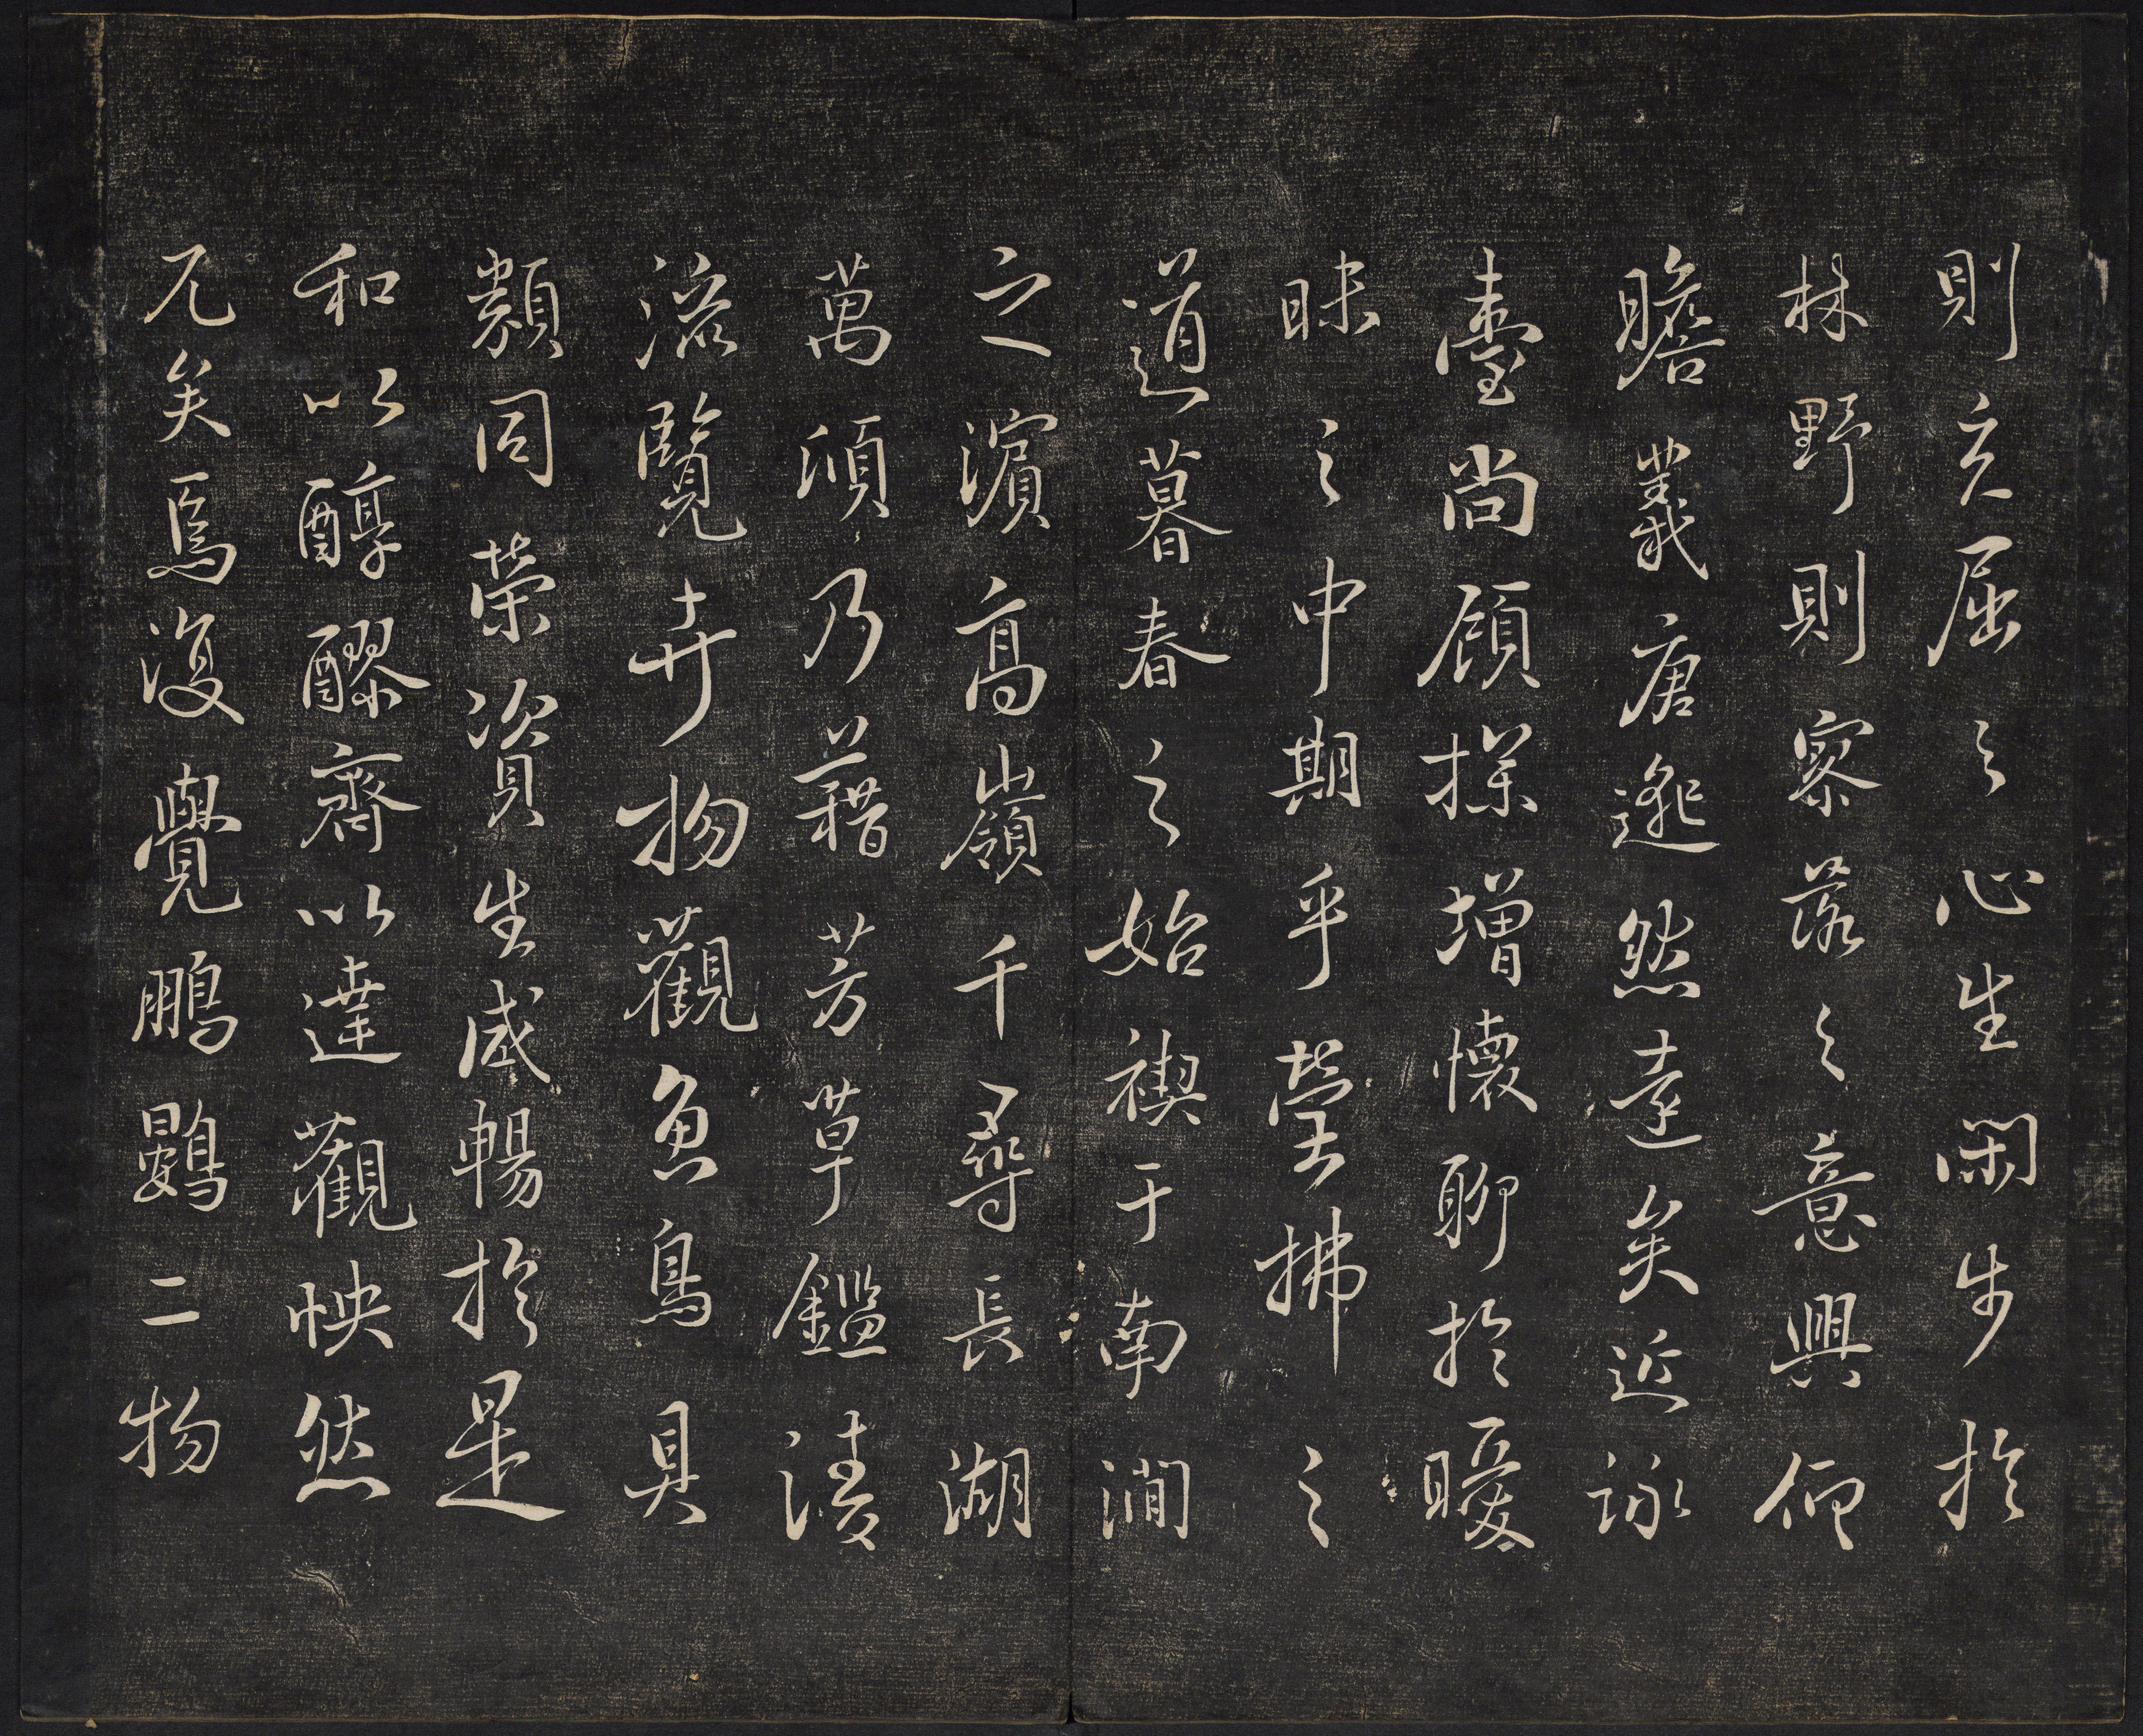 則充屈之心生閑步於
林野則寥落之意興仰
瞻羲唐邈然遠矣近詠
臺尚顧探增懷聊於曖
昧之中期乎瑩拂之
道暮春之始禊于南澗
之濱高嶺千尋長湖
萬頃乃藉芳草鑑清
流覽卉物觀魚鳥具
類同榮資生咸暢於是
和以醇醪齊以達觀怏然
兀矣焉復覺鵬鷃二物